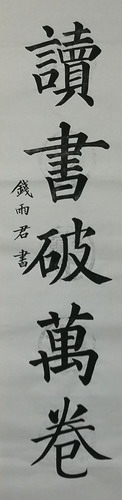 讀書破萬卷
錢雨君書